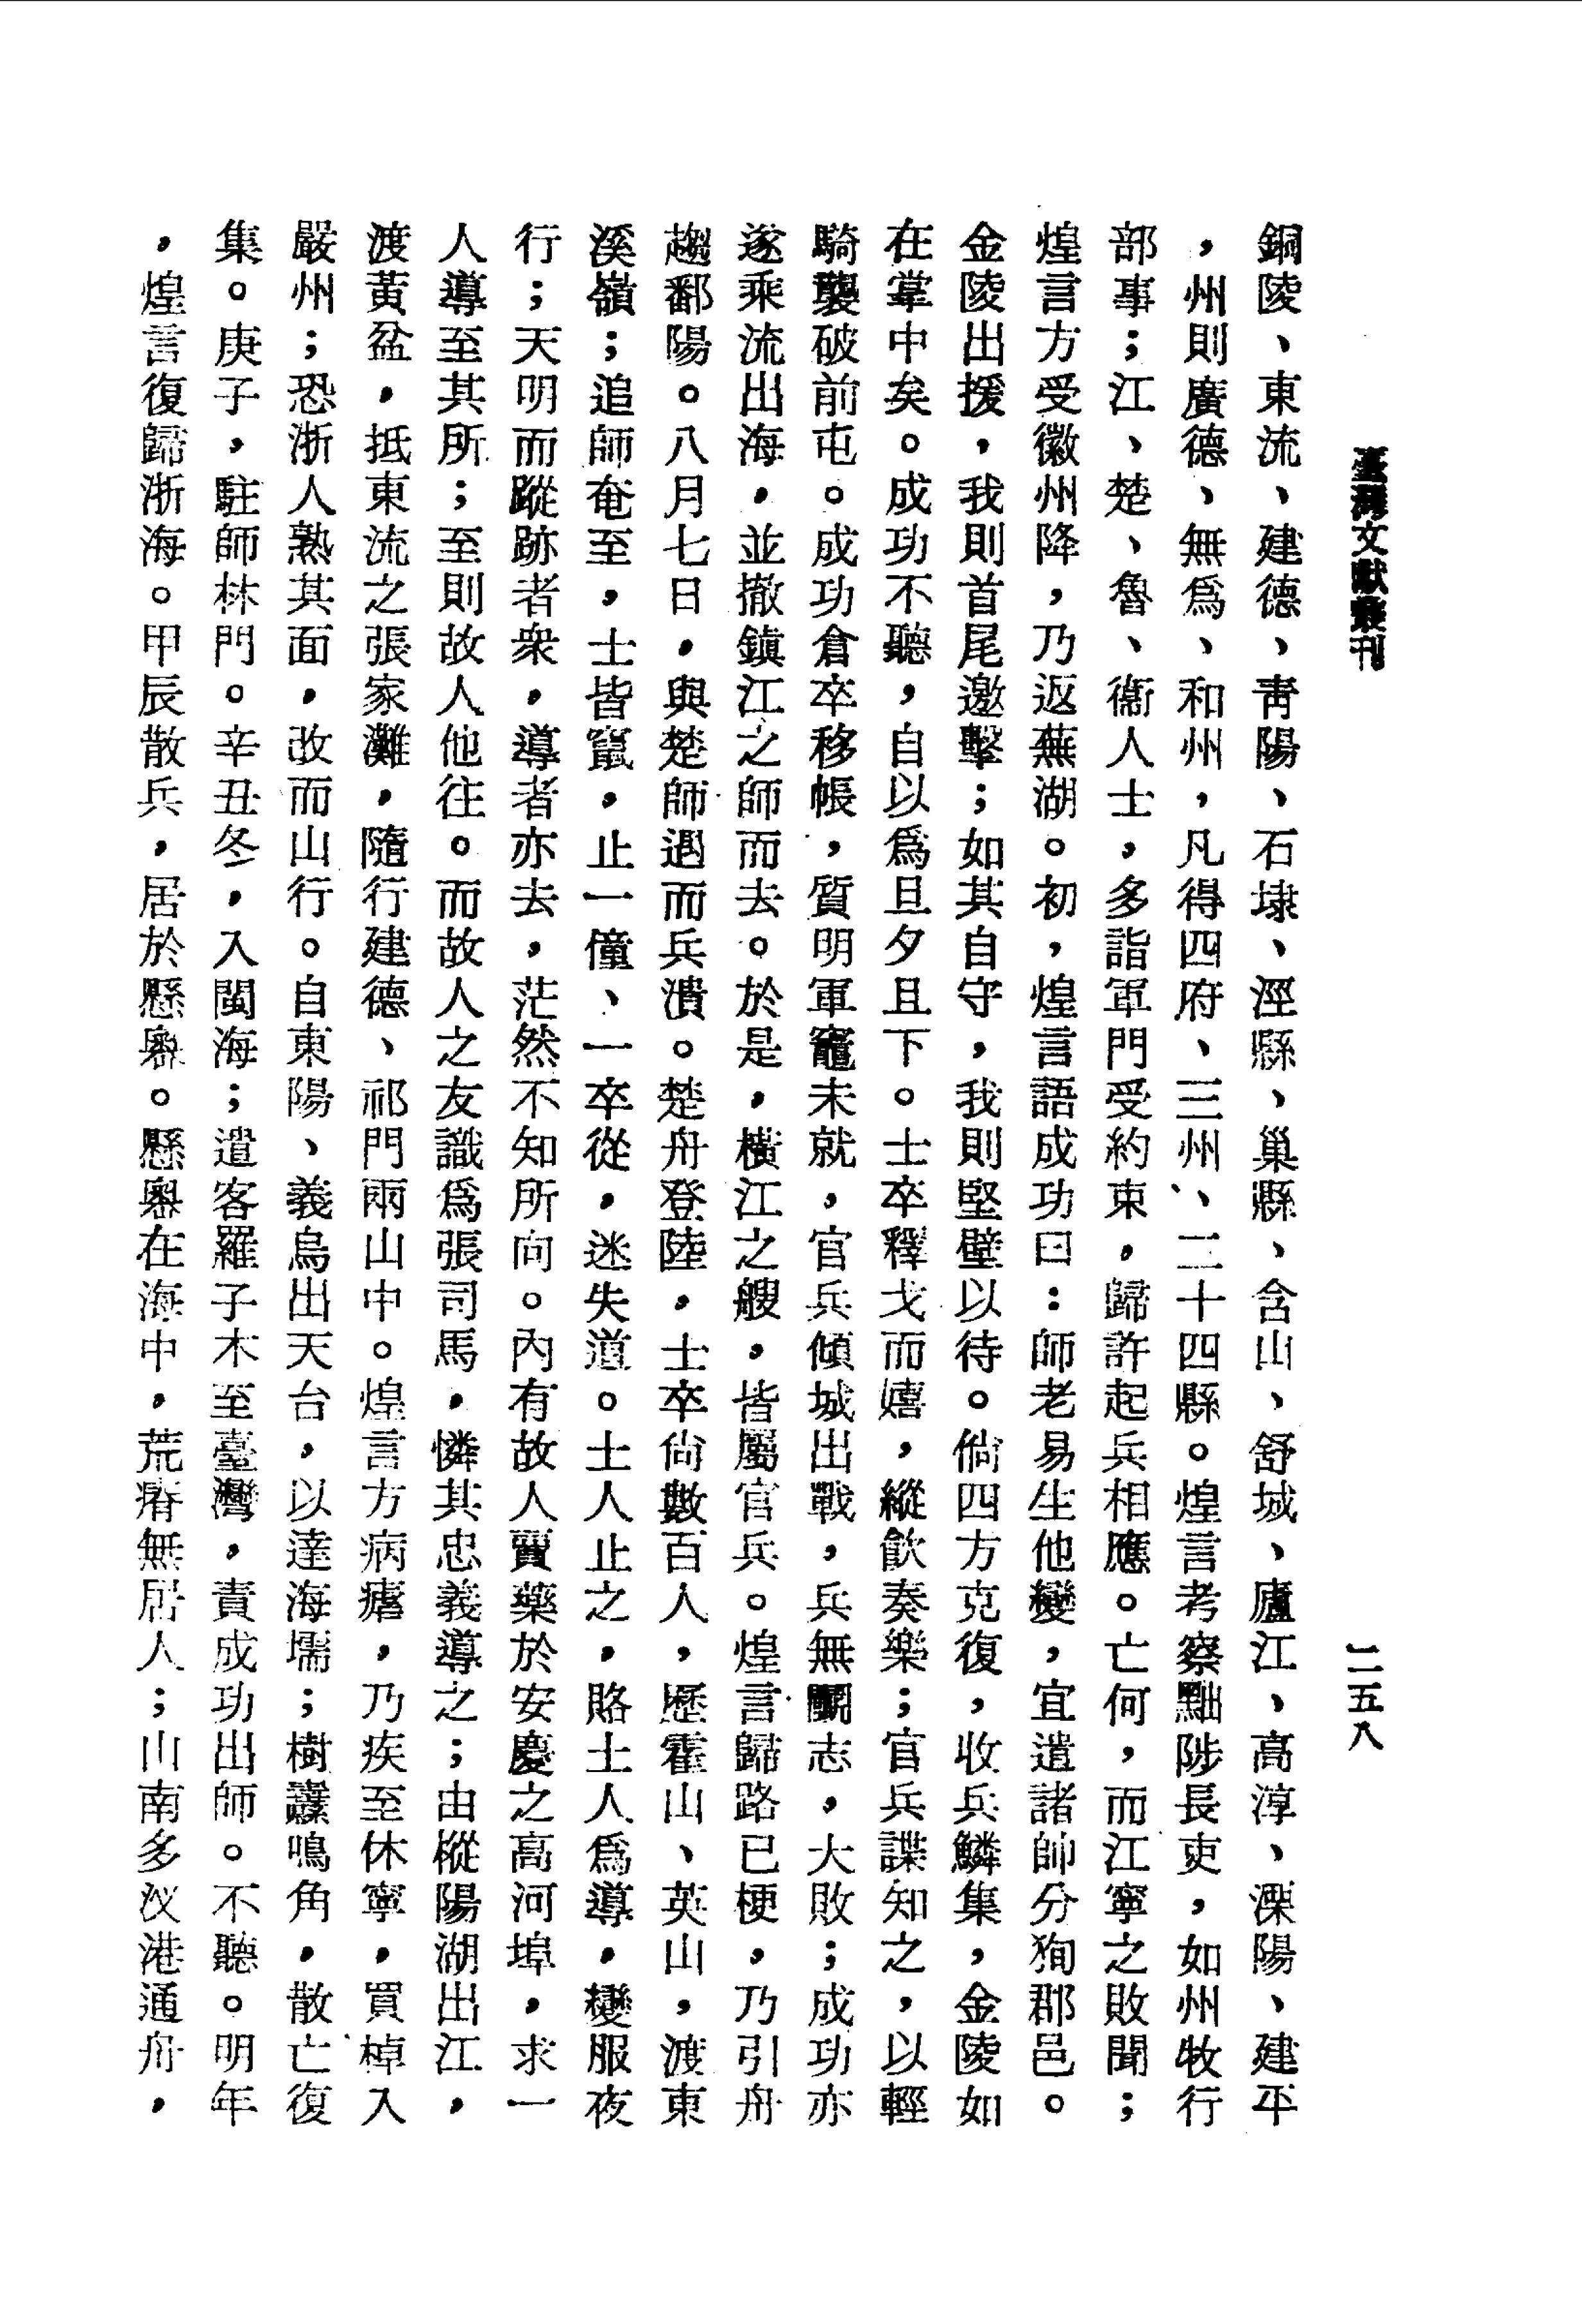 臺灣文獻叢刊
二五八
銅陵、東流、建德、靑陽、石埭、涇縣、巢縣、含山、舒城、廬江、高淳、溧陽、建平
，州則廣德、無爲、和州，凡得四府、三州、二十四縣。煌言考察黜陟長吏，如州牧行
部事；江、楚、魯、衞人士，多詣軍門受約束，歸許起兵相應。亡何，而江寧之敗聞；
煌言方受徽州降，乃返蕪湖。初，煌言語成功曰：師老易生他變，宜遣諸帥分狥郡邑。
金陵出援，我則首尾邀擊；如其自守，我則堅壁以待。倘四方克復，收兵鱗集，金陵如
在掌中矣。成功不聽，自以爲旦夕且下。士卒釋戈而嬉，縱飮奏樂；官兵諜知之，以輕
騎襲破前屯。成功倉卒移帳，質明軍竈未就，官兵傾城出戰，兵無鬭志，大敗；成功亦
遂乘流出海，並撤鎭江之師而去。於是，橫江之艘，皆屬官兵。煌言歸路已梗，乃引舟
趨鄱陽。八月七日，與楚師遇而兵潰。楚舟登陸，士卒尙數百人，歷霍山、英山，渡東
溪嶺；追師奄至，士皆竄，止一僮、一卒從，迷失道。土人止之，賂土人爲導，變服夜
行；天明而蹤跡者衆，導者亦去，茫然不知所向。內有故人賣藥於安慶之高河埠，求一
人導至其所；至則故人他往。而故人之友識爲張司馬，憐其忠義導之；由樅陽湖出江，
渡黃盆，抵東流之張家灘，隨行建德、祁門兩山中。煌言方病瘧，乃疾至休寧，買棹入
嚴州；恐浙人熟其面，改而山行。自東陽、義烏出天台，以達海壖；樹纛鳴角，散亡復
集。庚子，駐師林門。辛丑冬，入閩海；遣客羅子木至臺灣，責成功出師。不聽。明年
，煌言復歸浙海。甲辰散兵，居於懸嶴。懸嶴在海中，荒瘠無居人；山南多汊港通舟，